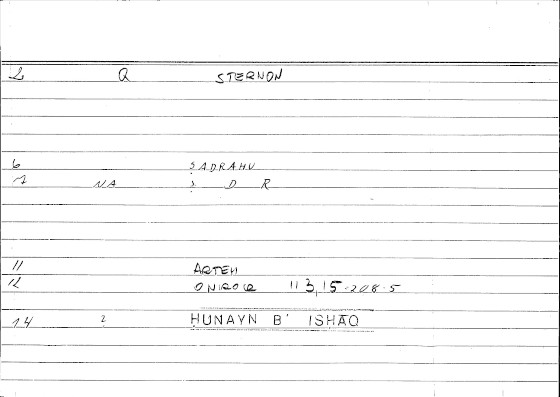 2 Q STERNON
6 ṢADRAHU
7 NA Ṣ D R
11 ARTEM
12 ONIROCR 113,15-208-5
14 2 ḤUNAYN B' ISḤAQ